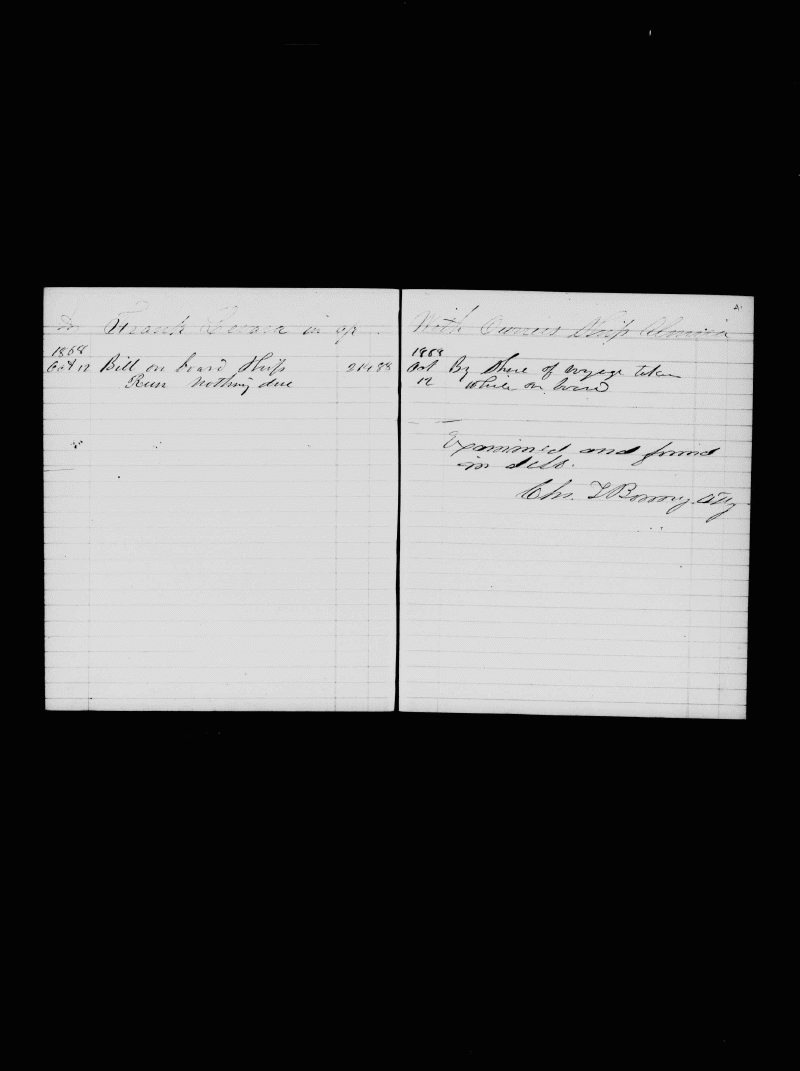 Dr Frank in a/c
1868
Oct 12 Bill on board Ship 214.88
Run nothing due
With Owners Ship Almira
1868
Oct By Share of voyage taken
12 while on board
Examined and found
in debt.
Chs. T Bonney. Atty